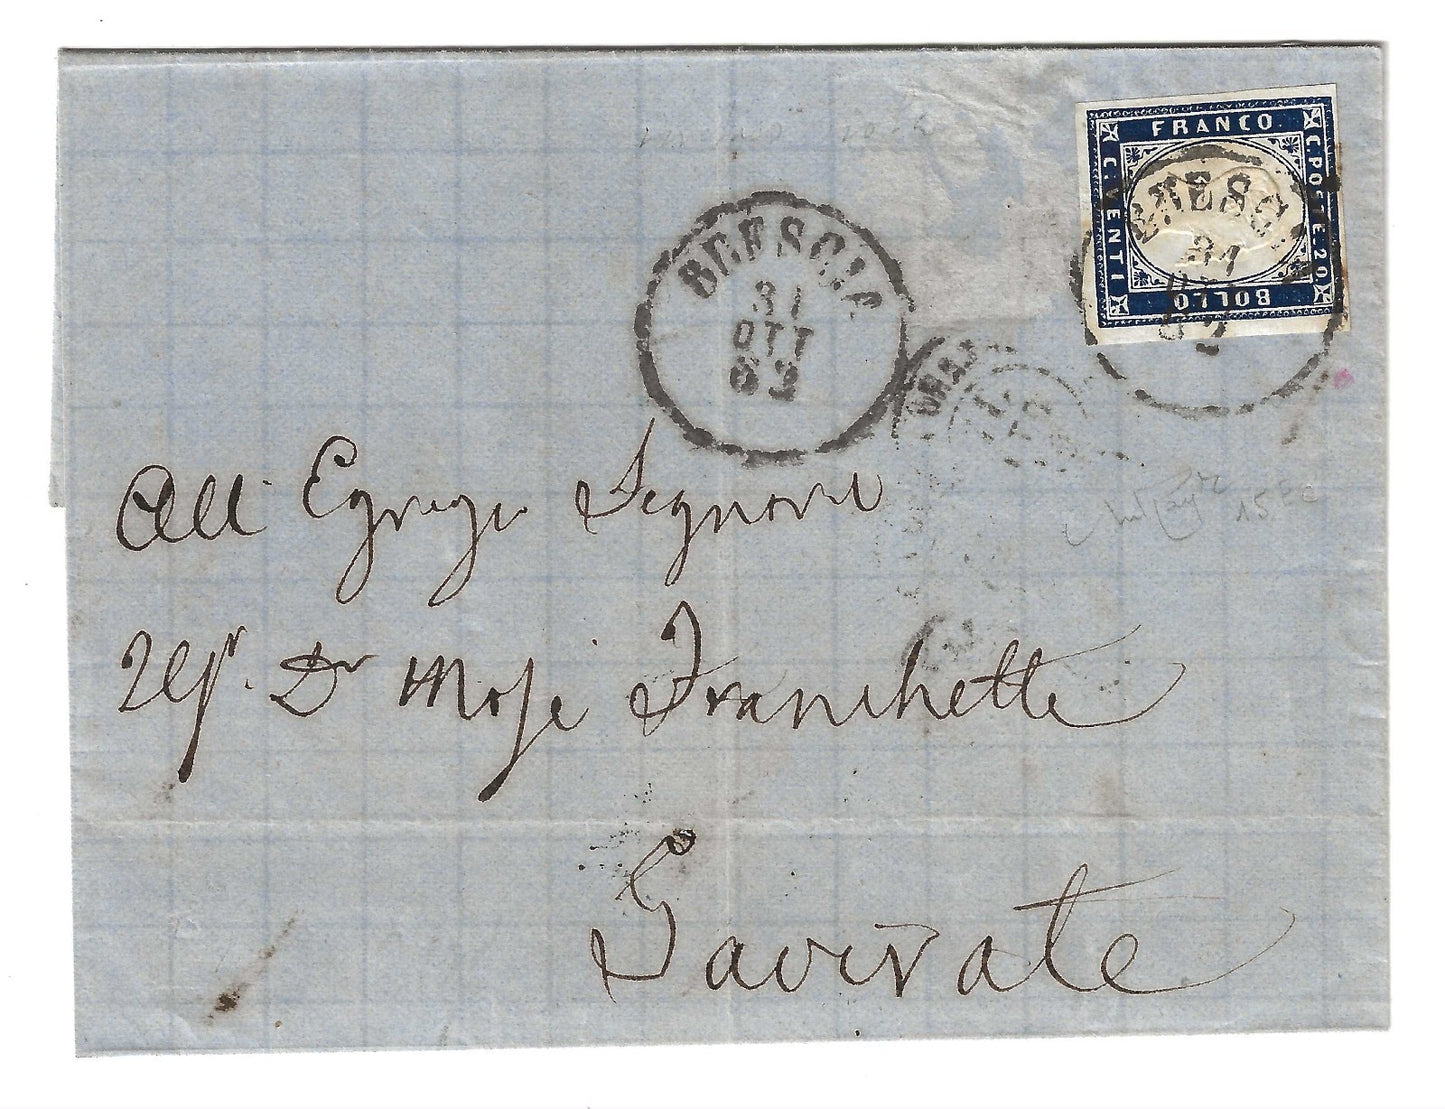 FRANCO
C. POSTE 20
BOLLO
C. VENTI
BRESCIA
31
OTT
62
BRESC
31
62
All' Egregi Signori
Dr Mosè Franchetti
15Ec
Gavirate